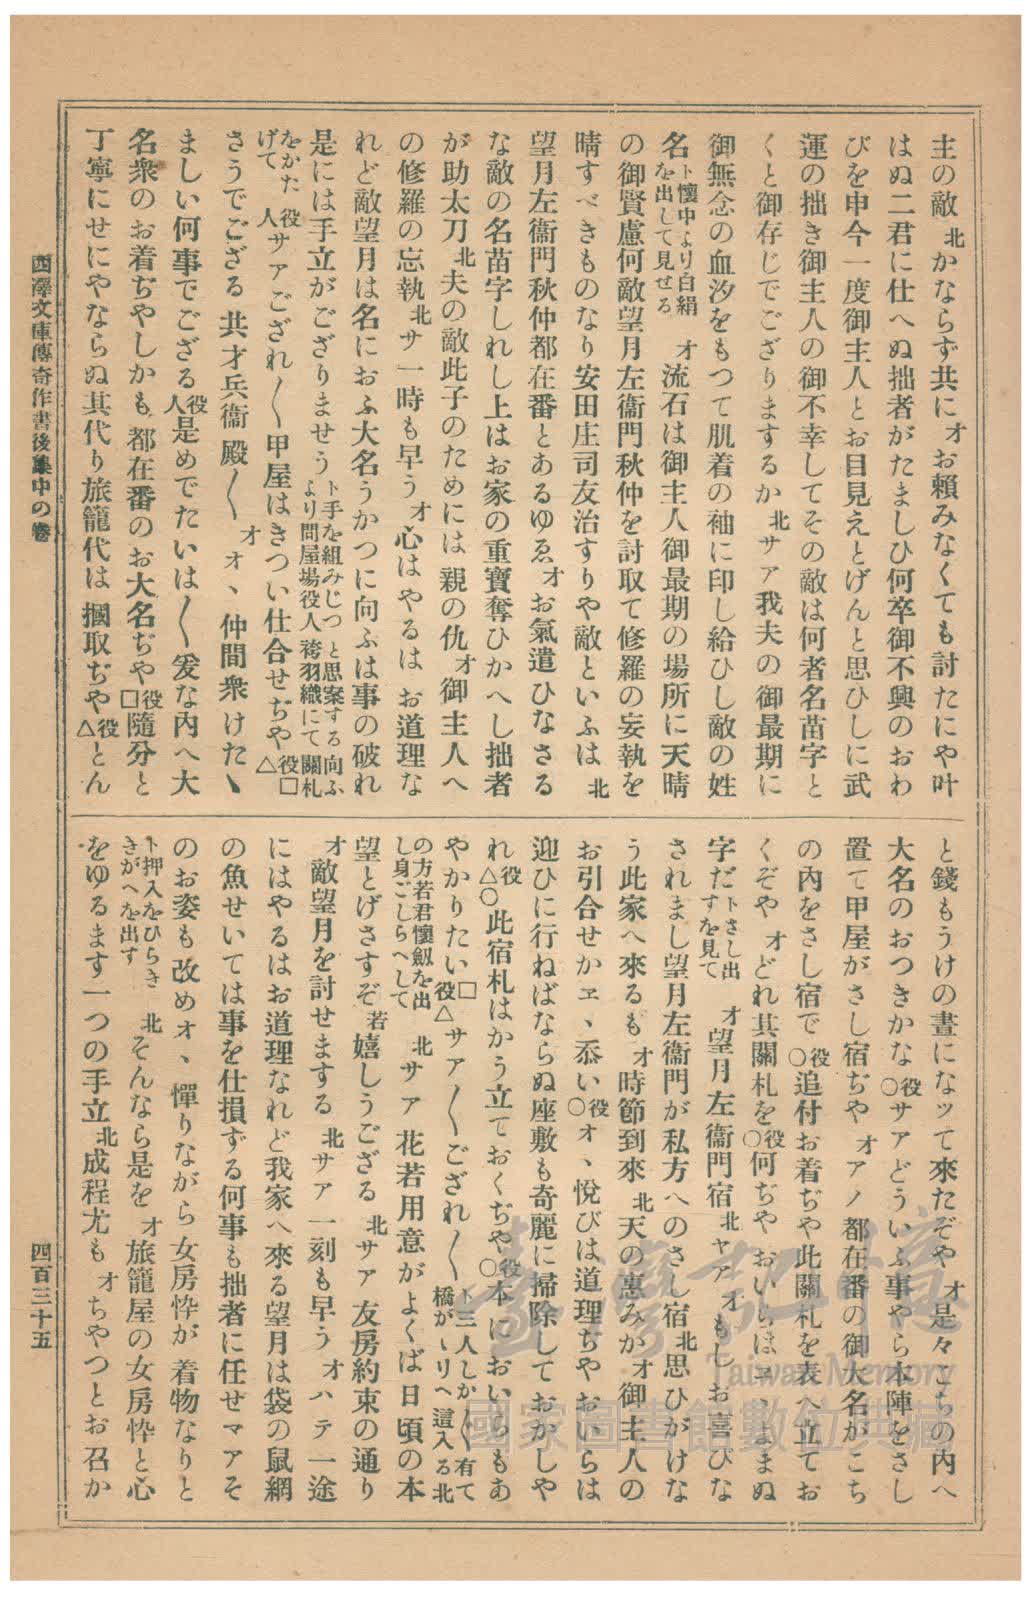 主の敵北かならず共にオお頼みなくても討たにや叶
はぬ二君に仕へぬ拙者がたましひ何卒御不興のおわ
びを申今一度御主人とお目見えとげんと思ひしに武
運の拙き御主人の御不幸してその敵は何者名苗字と
くと御存じでござりまするか北サア我夫の御最期に
御無念の血汐をもつて肌着の袖に印し給ひし敵の姓
名ト懐中より白絹を出して見せるオ流石は御主人御最期の場所に天晴
の御賢慮何敵望月左衞門秋仲を討取て修羅の妄執を
晴すべきものなり安田庄司友治すりや敵といふは北
望月左衞門秋仲都在番とあるゆゑオお氣遣ひなさる
な敵の名苗字しれし上はお家の重寳奪ひかへし拙者
が助太刀北夫の敵此子のためには親の仇オ御主人へ
の修羅の忘執北サ一時も早うオ心はやるはお道理な
れど敵望月は名におふ大名うかつに向ふは事の破れ
是には手立がござりませうト手を組みじつと思案する向ふより問屋場役人袴羽織にて關札
をかたげて役人サアござれ〱甲屋はきつい仕合せぢや役□△
さうでござる共才兵衞殿〱オオヽ仲間衆けたヽ
ましい何事でござる役人是めでたいは〱爰な内へ大
名衆のお着ぢやしかも都在番のお大名ぢや役□隨分と
丁寧にせにやならぬ其代り旅籠代は摑取ぢや役△とん
と錢もうけの晝になツて來たぞやオ是々こちの内へ
大名のおつきかな役○サアどういふ事やら本陣をさし
置て甲屋がさし宿ぢやオアノ都在番の御大名がこち
の内をさし宿で役○追付お着ぢや此關札を表へ立てお
くぞやオどれ其關札を役○何ぢやおいらはエヽよまぬ
字だトさし出すを見てオ望月左衞門宿北ヤアオもしお喜びな
されまし望月左衞門が私方へのさし宿北思ひがけな
う此家へ來るもオ時節到來北天の惠みかオ御主人の
お引合せかエヽ忝い役○オヽ悅びは道理ぢやおいらは
迎ひに行ねばならぬ座敷も奇麗に掃除しておかしや
れ役△○此宿札はかう立ておくぢや役○本においらもあ
やかりたい役□△サア〱ござれ〱ト三人しか〲有て橋がヽりへ這入る北
の方若君懷劔を出し身ごしらへして北サア花若用意がよくば日頃の本
望とげさすぞ若嬉しうござる北サア友房約束の通り
オ敵望月を討せまする北サア一刻も早うオハテ一途
にはやるはお道理なれど我家へ來る望月は袋の鼠網
の魚せいては事を仕損ずる何事も拙者に任せマアそ
のお姿も改めオヽ憚りながら女房忰が着物なりと
ト押入をひらききがへを出す北そんなら是をオ旅籠屋の女房忰と心
をゆるます一つの手立北成程尤もオちやつとお召か
西澤文庫傳奇作書後集中の卷
四百三十五
臺灣記憶
Taiwan Memory
國家圖書館數位典藏